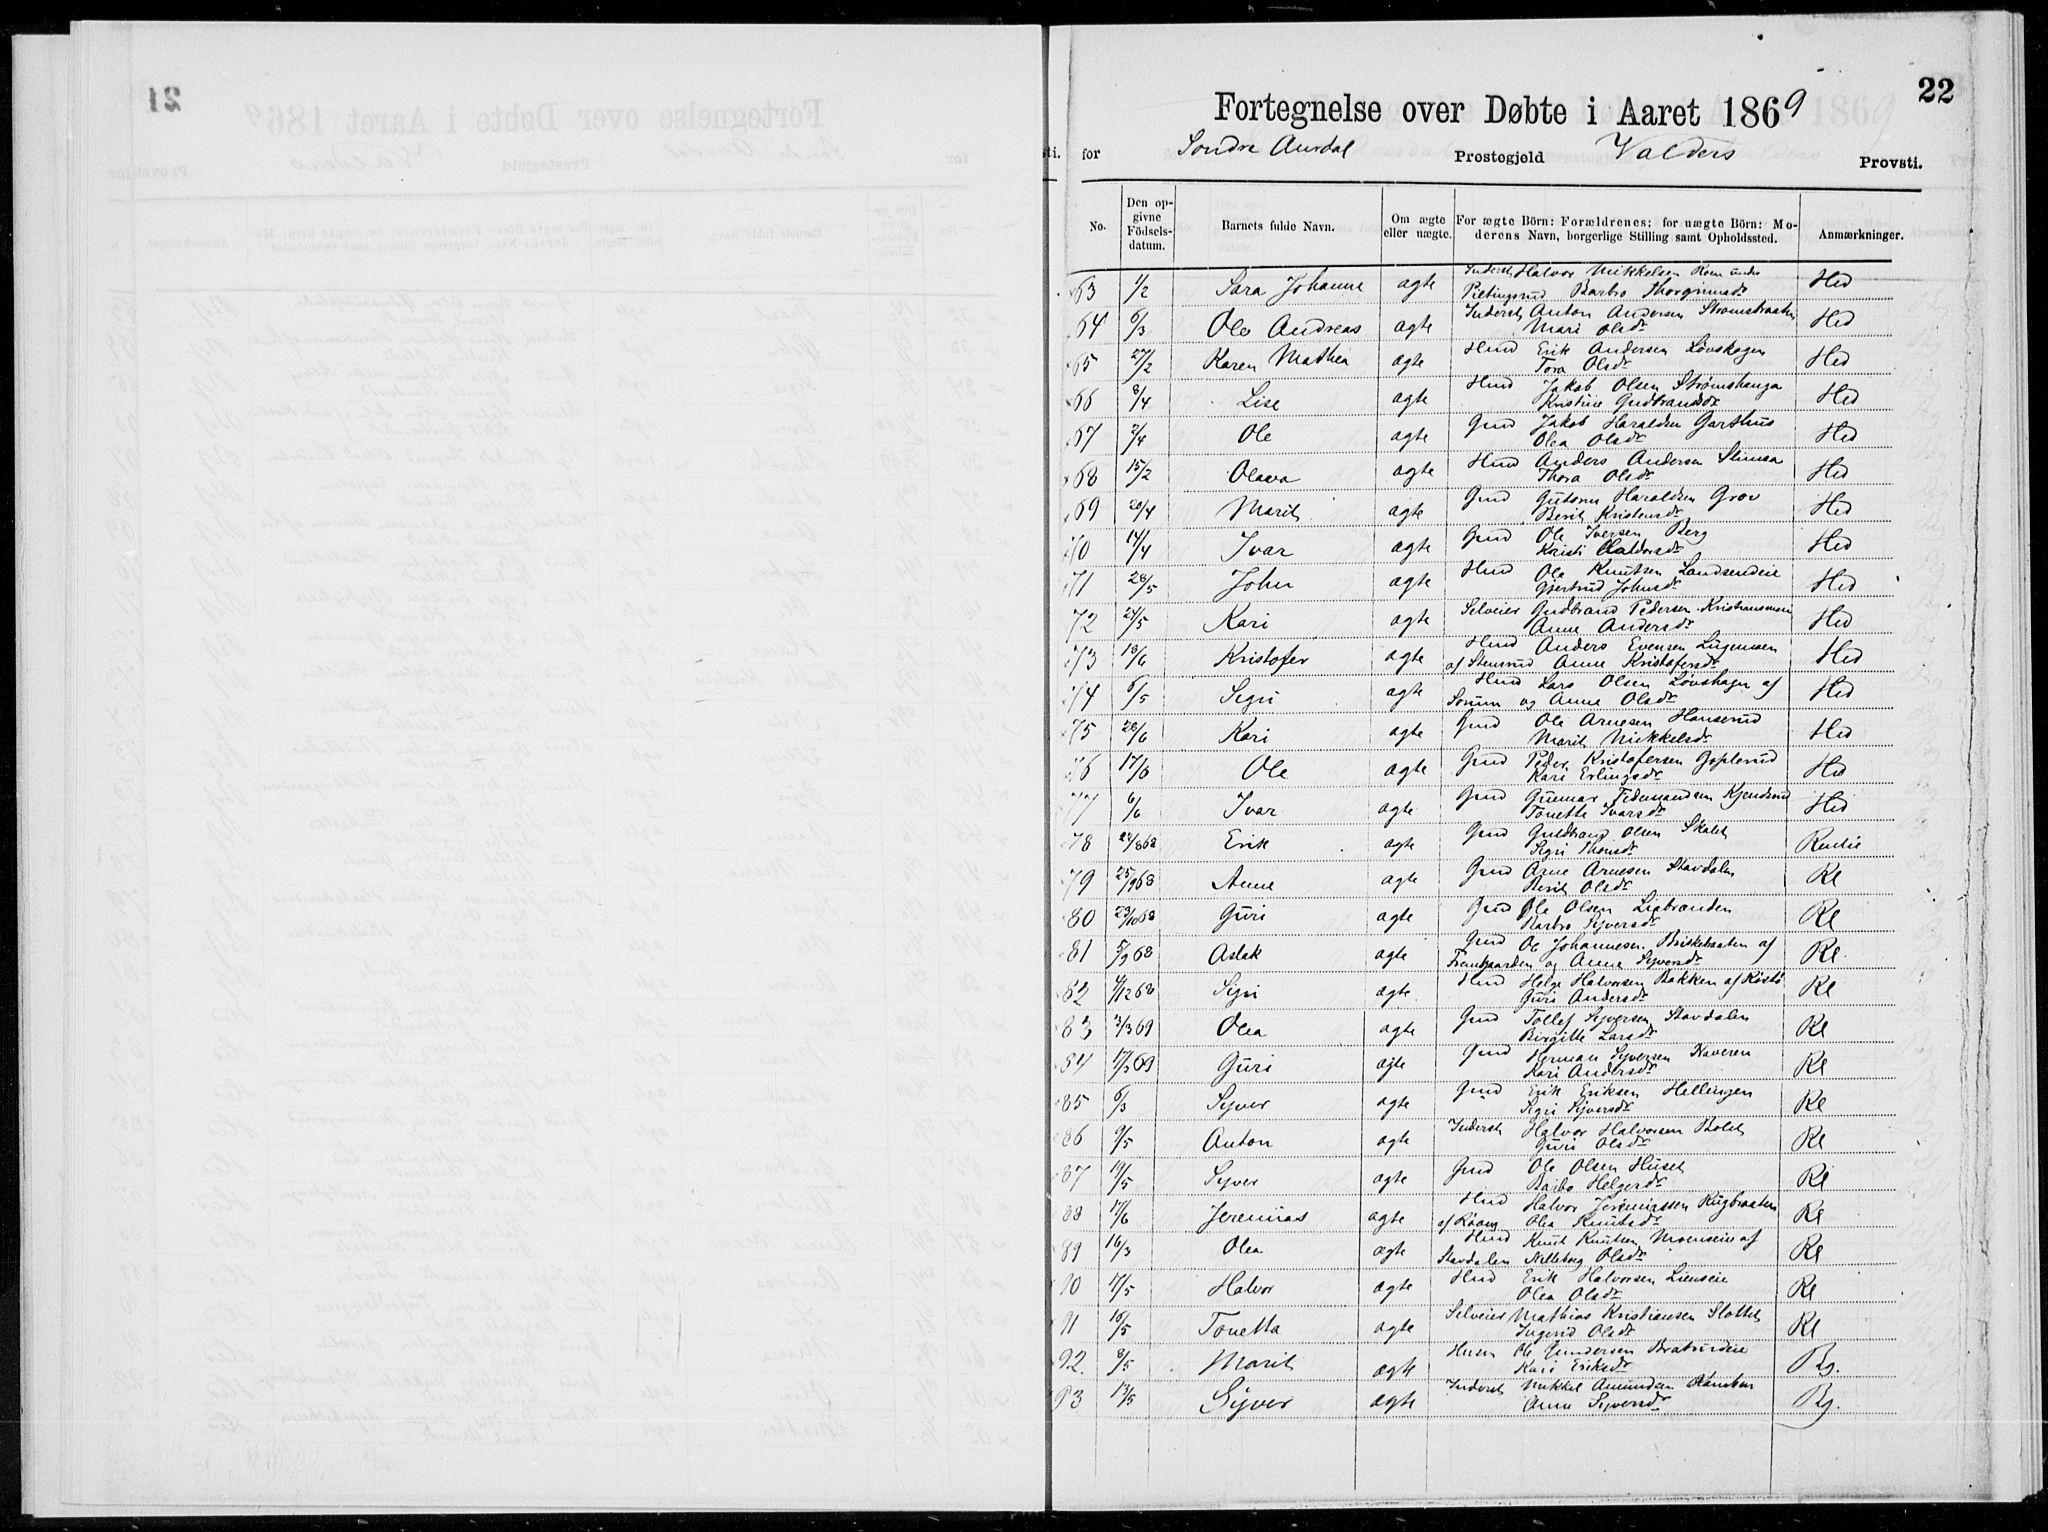 22
Fortegnelse over Døbte i Aaret 1869
for Søndre Aurdal Præstegjeld Valders Provsti.
No. Den opgivne Födselsdatum. Barnets fulde Navn. Om ægte eller uægte. For ægte Börn: Forældrenes; for uægte Börn: Moderens Navn, borgerlige Stilling samt Opholdssted. Anmærkninger.
63 1/2 Sara Johanne ægte Inderst Halvor Mikkelsen Rom under Hed
Barbro Thorgrimsdr
64 6/3 Ole Andreas ægte Inderst Anton Andersen Strømsbraaten Hed
Mari Olsdr
65 27/2 Karen Mathea ægte Hmd Erik Andersen Løvskogen Hed
Tora Olsdr
66 8/4 Lise ægte Hmd Jakob Olsen Strømshauga Hed
Kristine Gudbrandsdr
67 2/4 Ole ægte Gmd Jakob Haraldsen Garthus Hed
Olea Olsdr
68 15/2 Olava ægte Hmd Anders Andersen Hed
Thora Olsdr
69 20/4 Marit ægte Gmd Guttorm Haraldsen Grov Hed
Berit Kristensdr
70 14/4 Ivar ægte Gmd Ole Iversen Berg Hed
Kristi Halvorsdr
71 28/5 John ægte Hmd Ole Knutsen Landsendeie Hed
Gjertrud Johnsdr
72 24/5 Kari ægte Selveier Gudbrand Pedersen Kristiansmoen Hed
Anne Andersdr
73 18/6 Kristofer ægte Hmd Anders Evensen Hed
af Stensrud Anne Kristofersdr
74 6/5 Sigri ægte Hmd Lars Olsen Løvshagen af Hed
Sørum og Anne Olsdr
75 28/6 Kari ægte Gmd Ole Arnesen Hanserud Hed
Marit Mikkelsdr
76 17/6 Ole ægte Gmd Peder Kristofersen Goplerud Hed
Kari Erlingsdr
77 6/6 Ivar ægte Gmd Gunmar Fidemandsen Kjendsrud Hed
Tonette Ivarsdr
78 24/8 68 Erik ægte Gmd Guldbrand Olsen Skalet Renlie
Sigri Thomsdr
79 25/9 68 Anne ægte Gmd Arne Arnesen Stavdalen Rl
Berit Olsdr
80 29/10 68 Guri ægte Gmd Ole Olsen Ligbraaden Rl
Barbro Syversdr
81 5/9 68 Aslak ægte Gmd Ole Johannesen Briskebraaten af Rl
Framgaarden og Anne Syversdr
82 4/12 68 Sigri ægte Hmd Helge Halvorsen Bakken af Rl
Guri Andersdr
83 3/3 69 Olea ægte Gmd Tollef Syversen Stavdalen Rl
Birgitte Larsdr
84 17/3 69 Guri ægte Gmd Herman Syversen Haveren Rl
Kari Andersdr
85 6/3 Syver ægte Gmd Erik Eriksen Hellingen Rl
Sigri Syversdr
86 9/5 Anton ægte Inderst Halvor Halvorsen Bolet Rl
Guri Olsdr
87 19/5 Syver ægte Gmd Ole Olsen Huset Rl
Barbo Helgesdr
88 17/6 Jeremias ægte Hmd Halvor Jeremiassen Rugbraaten Rl
af Røang Olea Knutsdr
89 16/3 Olea ægte Hmd Knut Knutsen Moenseie af Rl
Stavdalen Nilleborg Olsdr
90 17/5 Halvor ægte Hmd Erik Halvorsen Lienseie Rl
Olea Olsdr
91 10/5 Tonetta ægte Selveier Mathias Kristiansen Slottet Rl
Ingerid Olsdr
92 8/5 Marit ægte Husm Ole Gundersen Bratrudeie Bg.
Kari Eriksdr
93 13/5 Syver ægte Inderst Mikkel Amundsen Bg.
Anne Syversdr
21